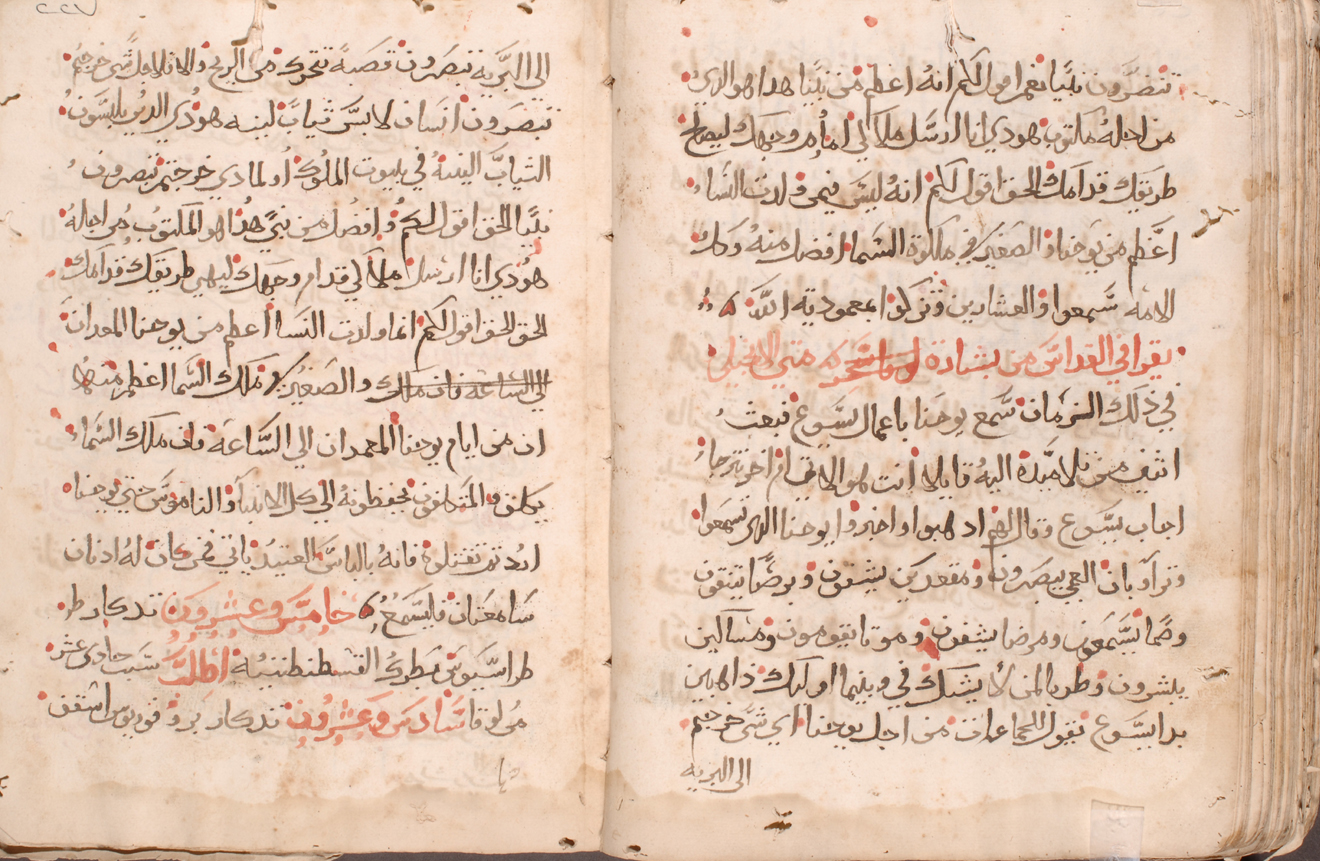 تنضرون نبيًا نعم اقول لكم انه اعظم من نبيًا هدا هو الدي
من اجله مكتوب هودي انا ارسل ملاكي امام وجهك ليصلح
طريقك قدامك الحق اقول لكم انه ليس فيمن ولدت النسا
اعظم من يوحنا و الصغير في ملكوة السما افضل منه وكل
الامه سمعوا و العشارين وتزكوا معمودية الله
يقرا في القداس من بشارة متى الانجيلي
في ذلك الزمان سمع يوحنا باعمال يسوع فبعث
اثنين من تلاميده اليه قايلا انت هو الاتي ام اخر نترجا
اجاب يسوع وقال لهم اد هبوا و اخبروا يوحنا الدي تسمعوا
وتراو بان العمي يبصرون و مقعدين يمشون و برصًا ينقون
وصما يسمعون ومرضا يشفون و موتا يقومون و مساكين
يبشرون و طوبا لمن لا يشك في و بينما اوليك ذاهبين
بدا يسوع يقول للجماعات من اجل يوحنا اي شي خرجتم
الى البريه
الى البرية تبصرون قصبةً تتحرك من الريح والا فلاجل شي خرجتم
تبصرون انسان لابس ثياب لينه هودي الدين يلبسون
الثياب الينه في بيوت الملوك او لمادي خرجتم تبصرون
نبيًا الحق اقول لكم و افضل من نبي هدا هو المكتوب من اجله
هودي انا ارسل ملاكي قدام وجهك ليهي طريقك قدامك
الحق الحق اقول لكم انما ولدت النسا اعظم من يوحنا المعمدان
الي الساعه فان ملك و الصغير في ملك السما اعظم منه
ان من ايام يوحنا المعمدان الي الساعة فان ملك السما
يكلف و المتكلفون يخطفونه الي كل الانبيا و الناموس حتى يوحنا
اردتم تقبلوة فانه الياس العتيد ياتي فمن كان له ادنان
سامعتان فليسمع خامس وعشرون تدكار طر
طراسيوس بطرك القسطنطنيه سبت حادي عشر
من لوقا سادس وعشرون تدكار بروفوريوس اسقف